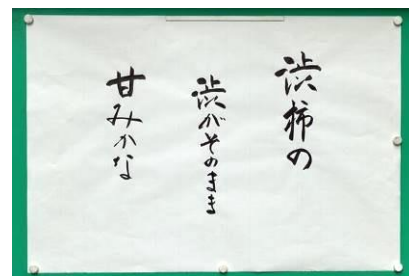 渋柿の
渋がそのまま
甘みかな